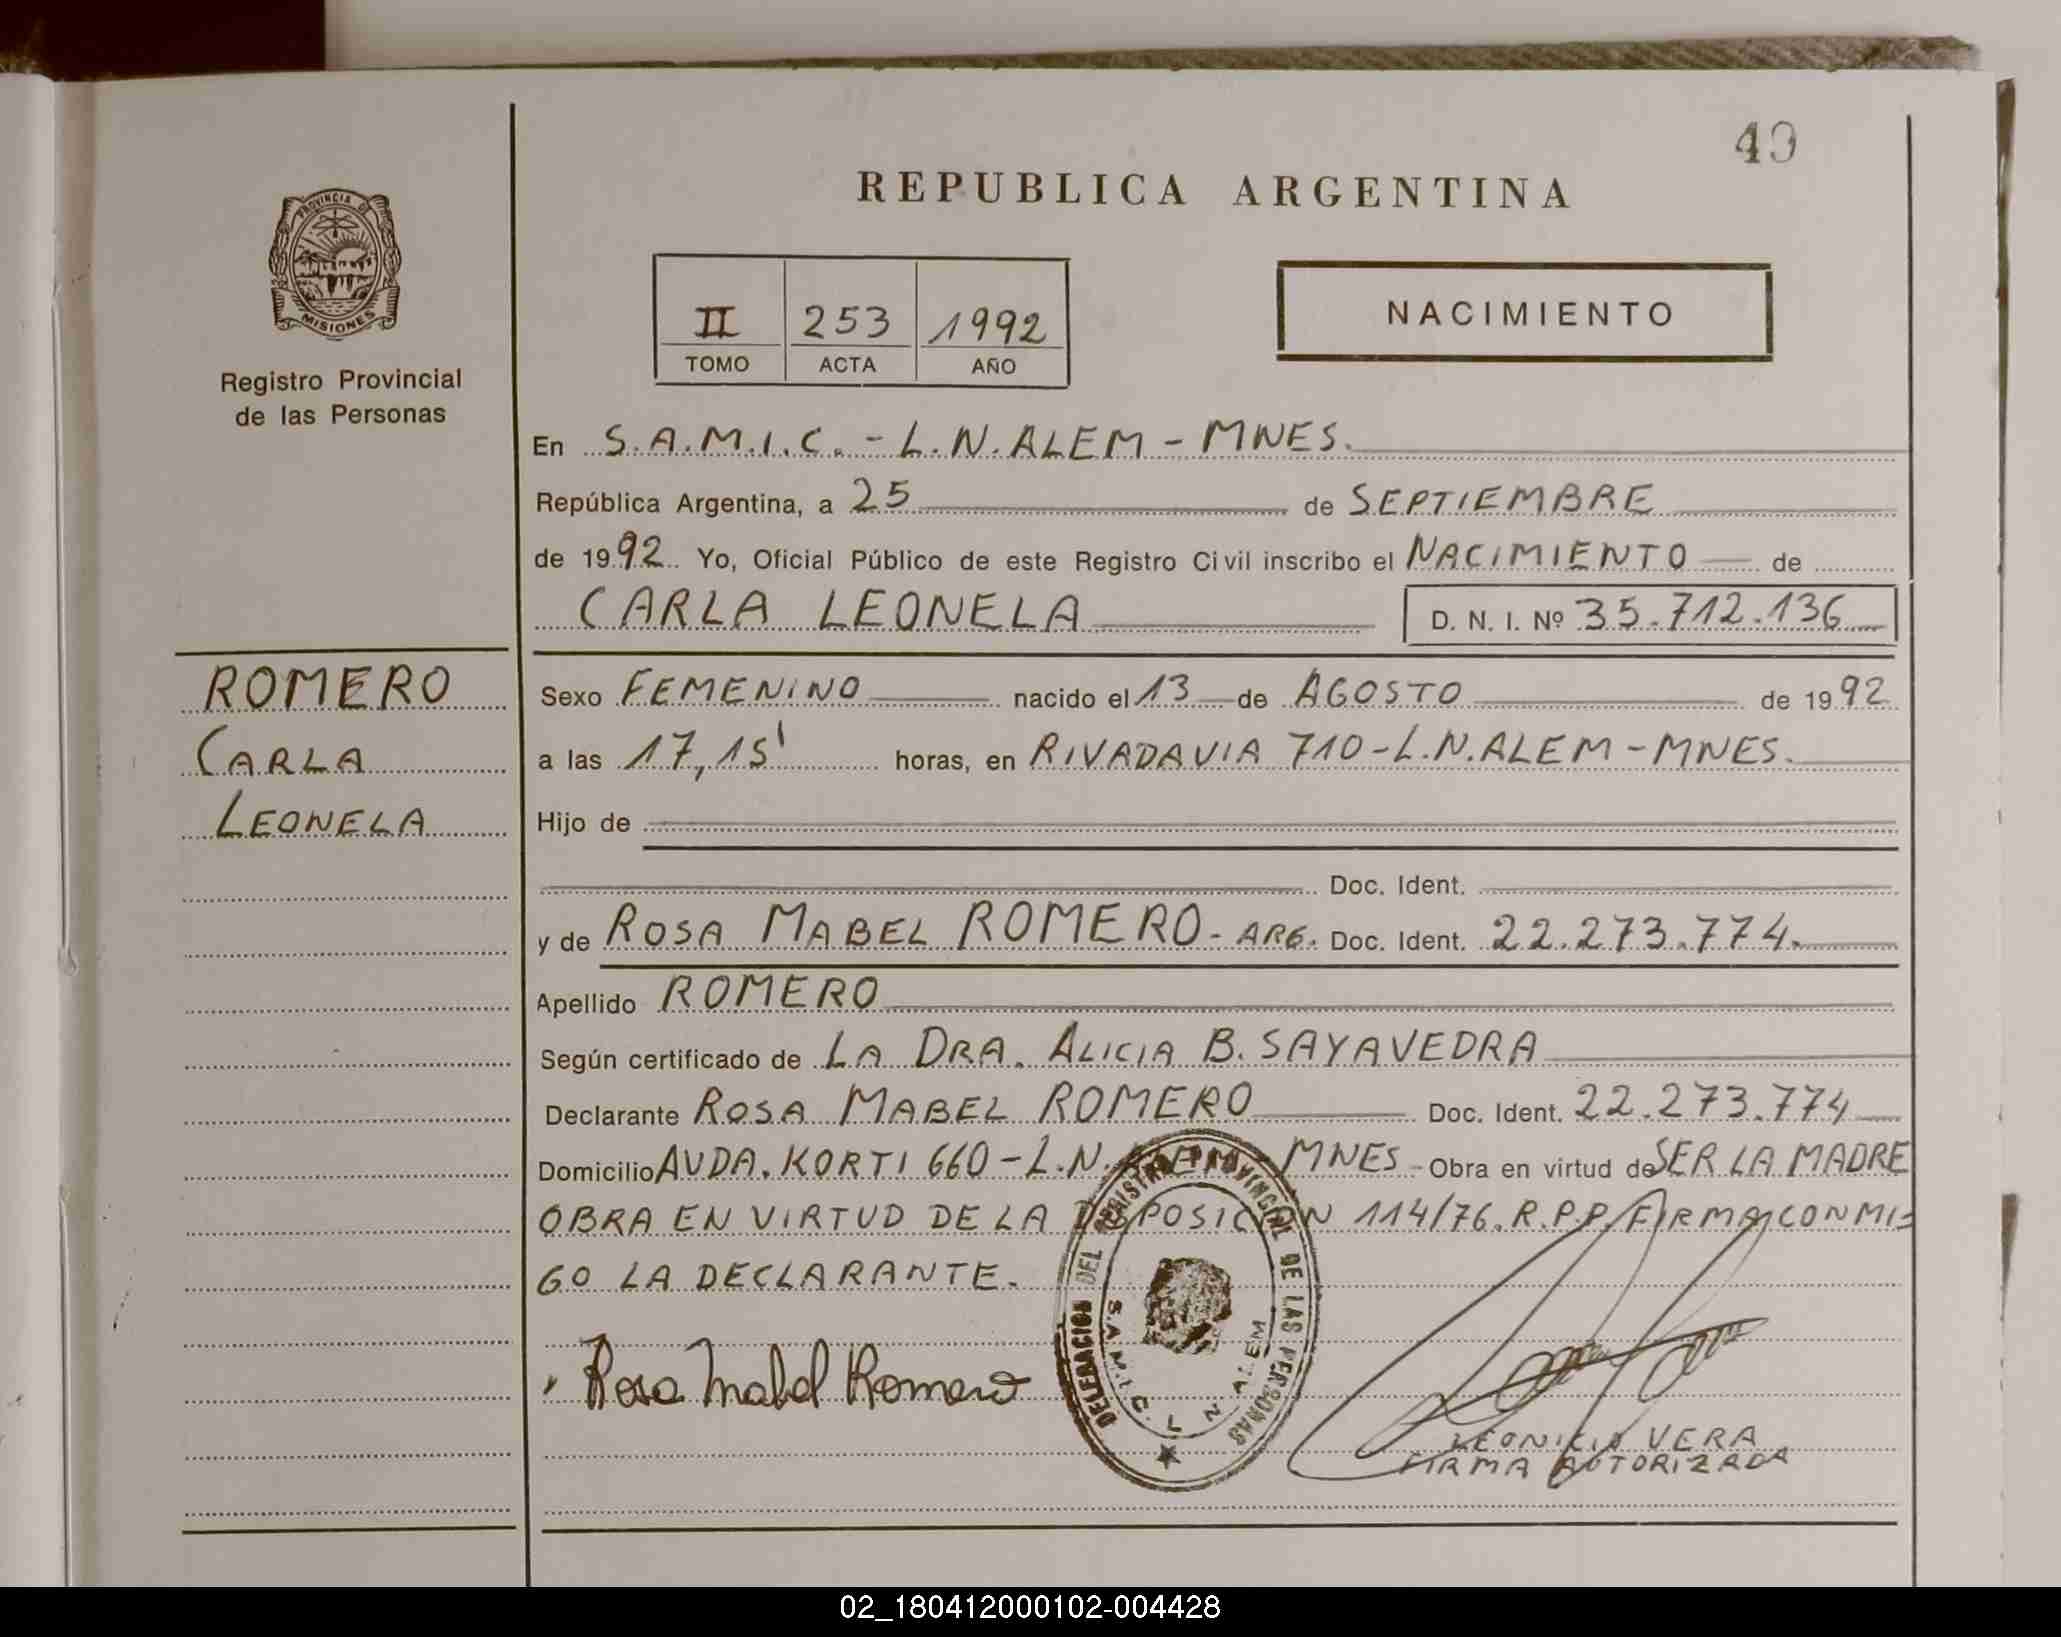 49
REPUBLICA ARGENTINA
PROVINCIA DE
MISIONES
Registro Provincial
de las Personas
II 253 1992
TOMO ACTA AÑO
NACIMIENTO
En S.A.M.I.C. - L.N. ALEM - MNES.
República Argentina, a 25 de SEPTIEMBRE
de 1992. Yo, Oficial Público de este Registro Civil inscribo el NACIMIENTO de
CARLA LEONELA D. N. I. Nº 35.712.136
ROMERO
CARLA
LEONELA
Sexo FEMENINO nacido el 13 de AGOSTO de 1992
a las 17,15' horas, en RIVADAVIA 710 - L.N. ALEM - MNES.
Hijo de
Doc. Ident.
y de ROSA MABEL ROMERO - ARG. Doc. Ident. 22.273.774.
Apellido ROMERO
Según certificado de LA DRA. ALICIA B. SAYAVEDRA
Declarante ROSA MABEL ROMERO Doc. Ident. 22.273.774
Domicilio AVDA. KORTI 660 - L.N. ALEM - MNES - Obra en virtud de SER LA MADRE
OBRA EN VIRTUD DE LA DISPOSICION 114/76. R.P.P. FIRMA CONMI=
GO LA DECLARANTE.
DELEGACION DEL REGISTRO PROVINCIAL DE LAS PERSONAS
S.A.M.I.C. L. N. ALEM
Rosa Mabel Romero
LEONICIA VERA
FIRMA AUTORIZADA
02_180412000102-004428